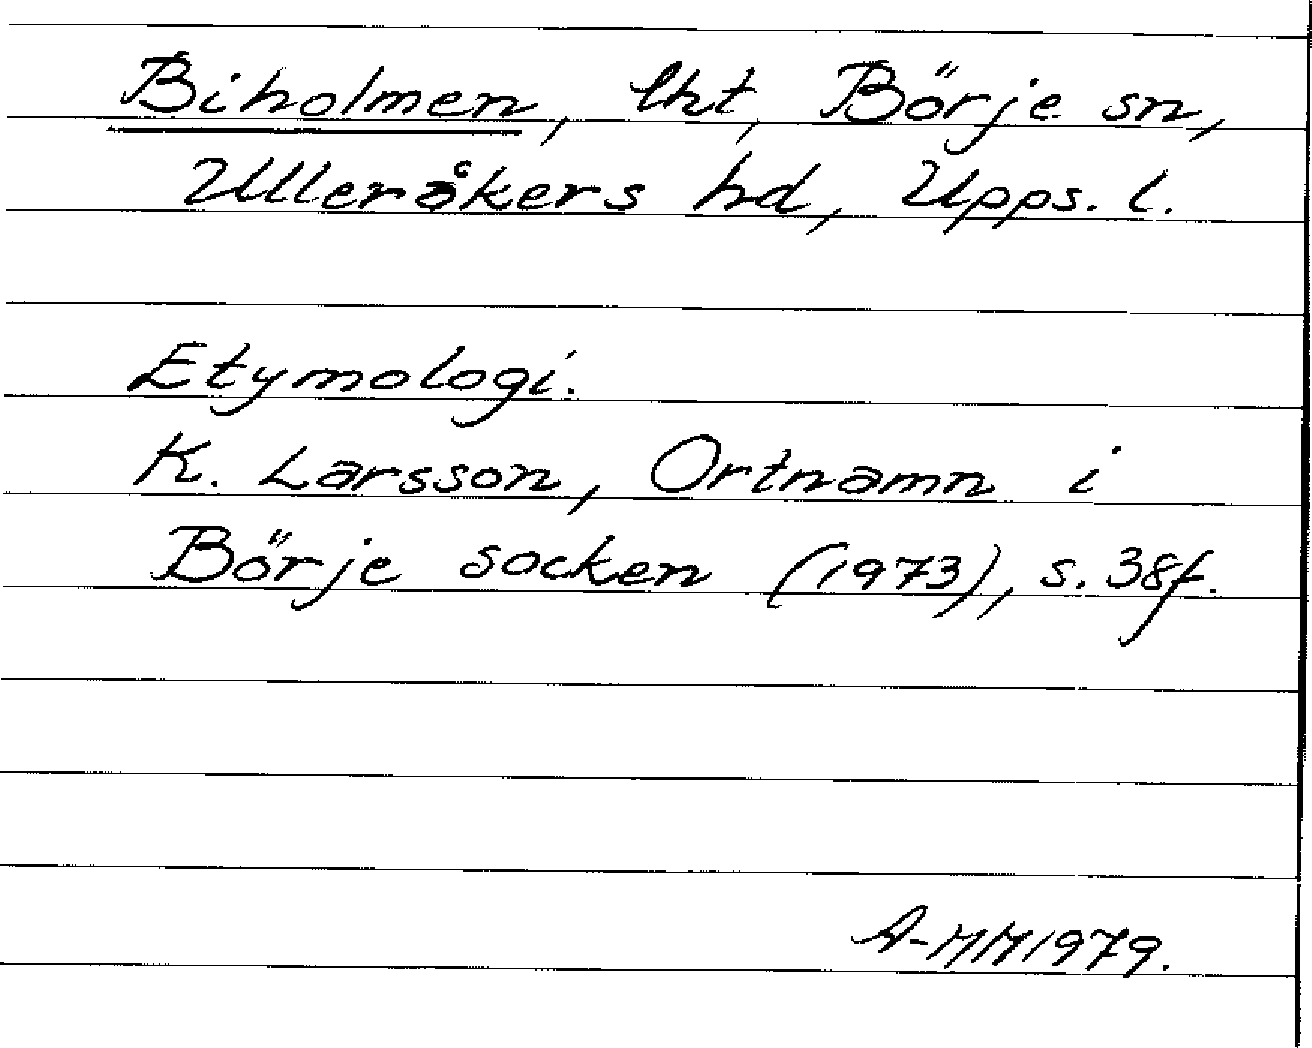 Biholmen, lht, Börje sn,
Ulleråkers hd, Upps. l.
Etymologi.
K. Larsson, Ortnamn i
Börje socken (1973), s. 38f.
A-MM1979.